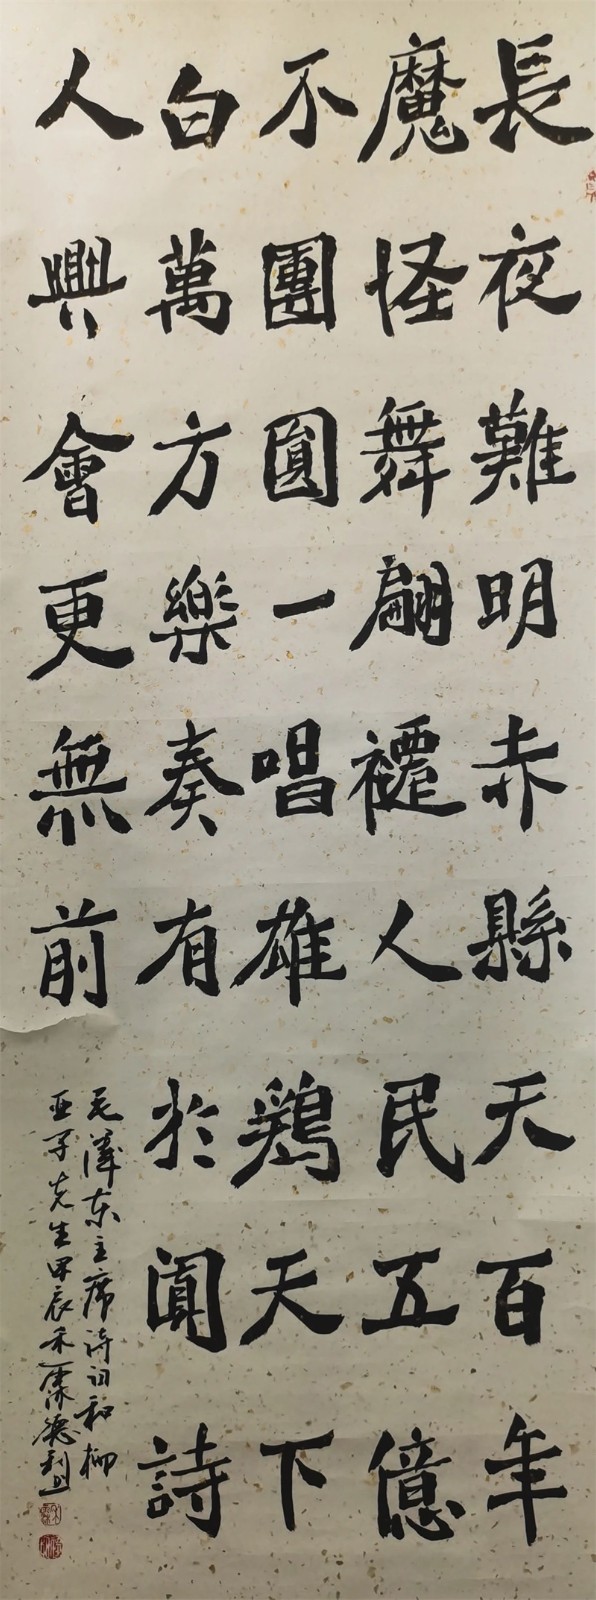 長夜難明赤縣天百年
魔怪舞翩褼人民五億
不團圓一唱雄鷄天下
白萬方樂奏有於闐詩
人興會更無前
毛澤东主席诗词和柳
亚子先生甲辰禾